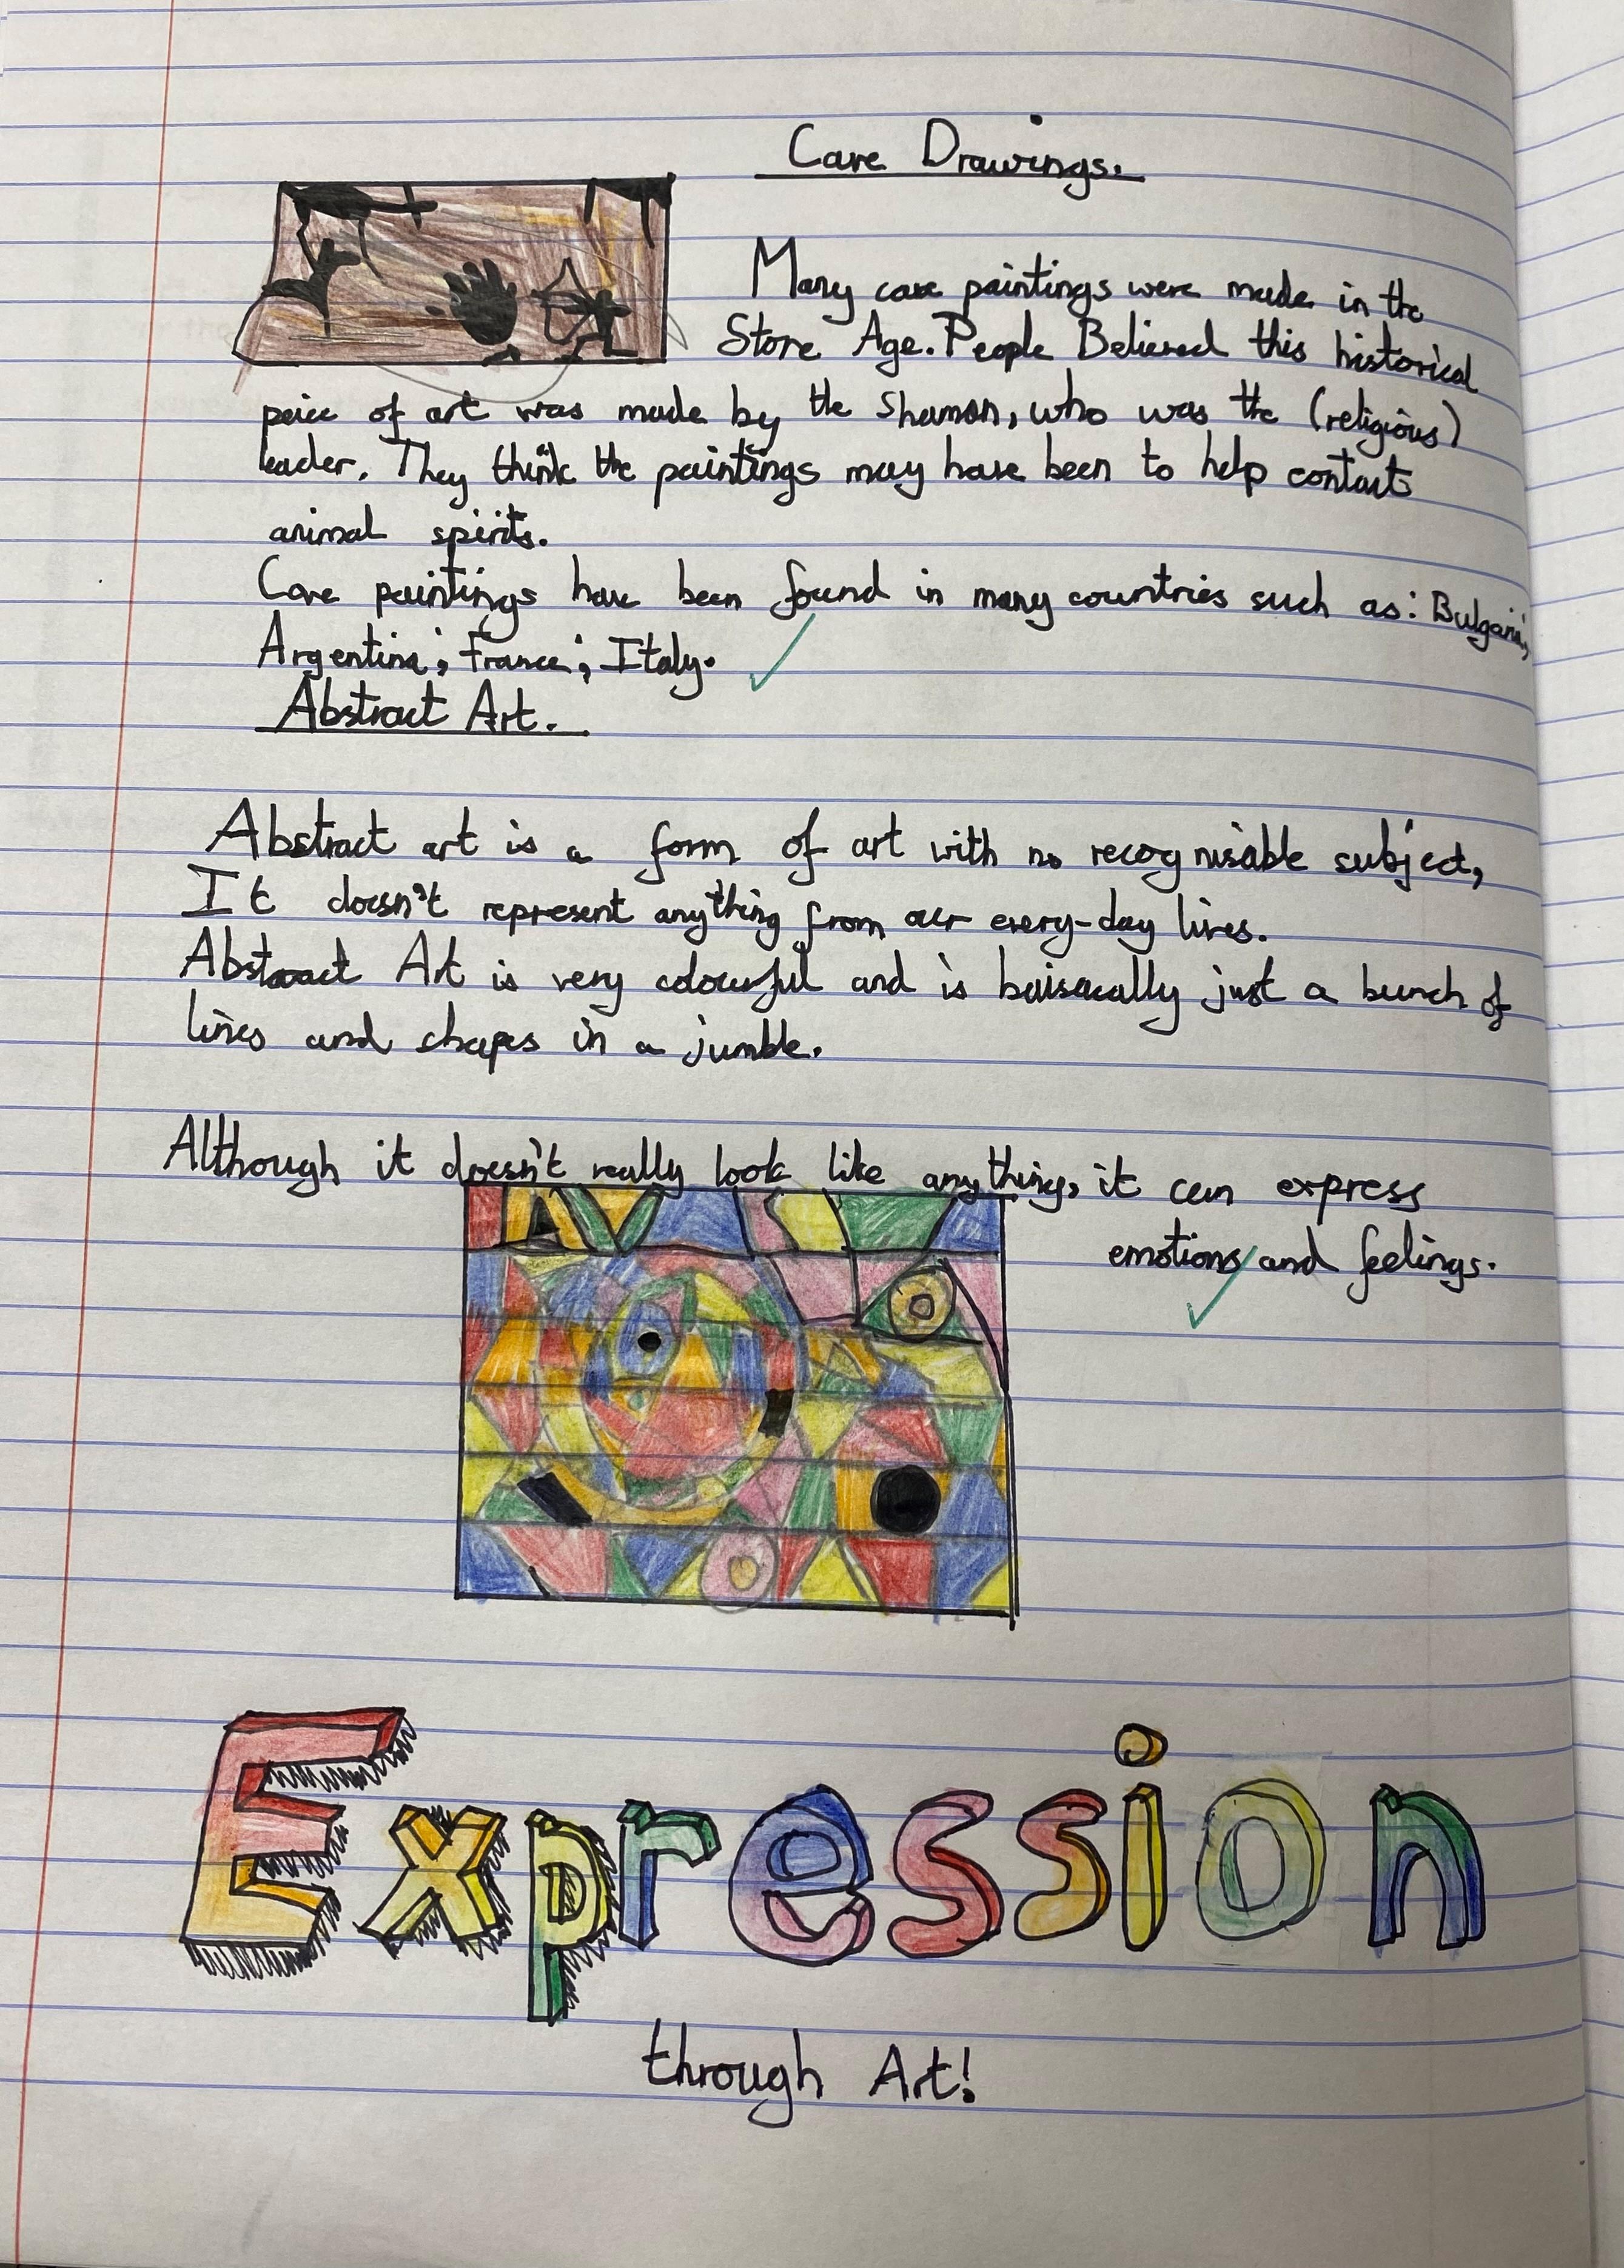 Cave Drawings.
Many cave paintings were made in the
Stone Age. People Believed this historical
peice of art was made by the Shaman, who was the (religious)
leader. They think the paintings may have been to help contact
animal spirits.
Cave paintings have been found in many countries such as: Bulgaria,
Argentina; France; Italy.
Abstract Art.
Abstract art is a form of art with no recognisable subject,
It doesn't represent anything from our every-day lives.
Abstract Art is very colourful and is baisacally just a bunch of
lines and shapes in a jumble.
Although it doesn't really look like anything, it can express
emotions and feelings.
Expression
through Art!